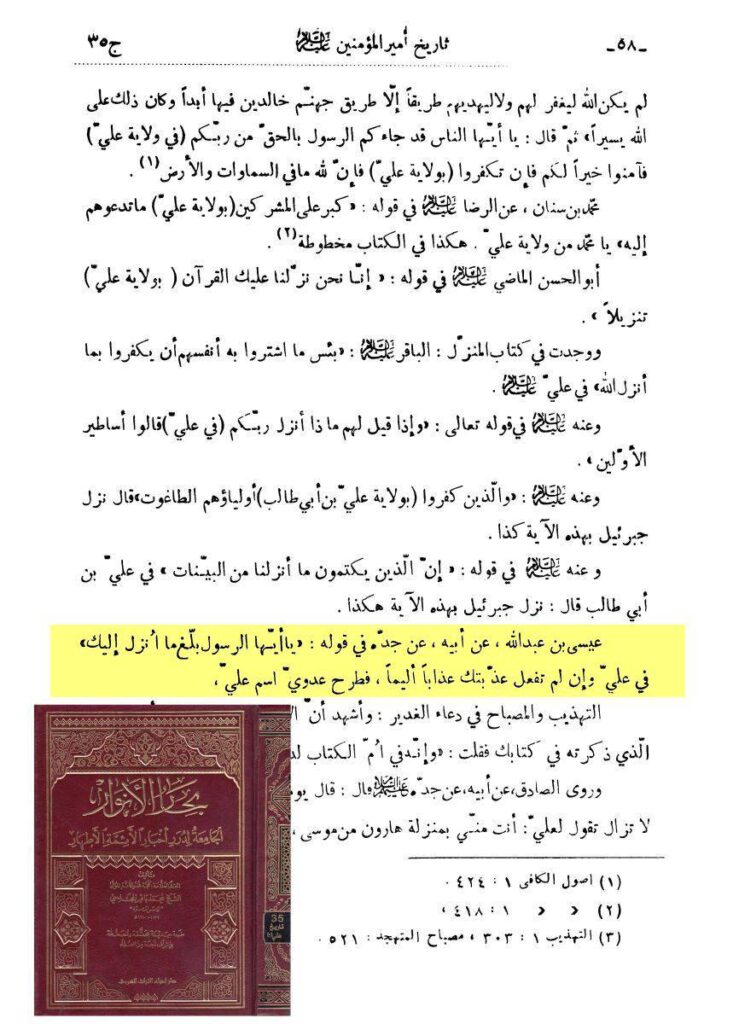 ـ ٥٨ ـ تاريخ أمير المؤمنين عليه السلام ج ٣٥
لم يكن الله ليغفر لهم ولا ليهديهم طريقاً إلّا طريق جهنّم خالدين فيها أبداً وكان ذلك على
الله يسيراً» ثمّ قال : يا أيّها الناس قد جاءكم الرسول بالحقّ من ربّكم (في ولاية عليّ)
فآمنوا خيراً لكم فإن تكفروا (بولاية عليّ) فإنّ لله ما في السماوات والأرض (١) .
محمّد بن سنان ، عن الرضا عليه السلام في قوله : «كبر على المشركين (بولاية عليّ) ما تدعوهم
إليه» يا محمّد من ولاية عليّ . هكذا في الكتاب مخطوطة (٢) .
أبو الحسن الماضي عليه السلام في قوله : « إنّا نحن نزّلنا عليك القرآن ( بولاية عليّ )
تنزيلاً » .
ووجدت في كتاب المنزّل : الباقر عليه السلام : «بئس ما اشتروا به أنفسهم أن يكفروا بما
أنزل الله» في عليّ عليه السلام .
وعنه عليه السلام في قوله تعالى : «وإذا قيل لهم ماذا أنزل ربّكم (في عليّ) قالوا أساطير
الأوّلين» .
وعنه عليه السلام : «والّذين كفروا (بولاية عليّ بن أبي طالب) أولياؤهم الطاغوت» قال نزل
جبرئيل بهذه الآية كذا .
و عنه عليه السلام في قوله : « إنّ الّذين يكتمون ما أنزلنا من البيّنات » في عليّ بن
أبي طالب قال : نزل جبرئيل بهذه الآية هكذا .
عيسى بن عبدالله ، عن أبيه ، عن جدّه في قوله : «يا أيّها الرسول بلّغ ما اُنزل إليك»
في عليّ وإن لم تفعل عذّبتك عذاباً أليماً ، فطرح عدويّ اسم عليّ ،
التهذيب والمصباح في دعاء الغدير : وأشهد أنّ
الّذي ذكرته في كتابك فقلت : «وإنّه في اُمّ الكتاب
وروى الصادق ، عن أبيه ، عن جدّه عليهم السلام قال : قال
لا تزال تقول لعليّ : أنت منّي بمنزلة هارون من موسى ،
(١) اصول الكافى ١ : ٤٢٤ .
(٢) « « ١ : ٤١٨ ،
(٣) التهذيب ١ : ٣٠٣ ، مصباح المتهجد : ٥٢١ .
بحار الأنوار
الجامعة لدرر أخبار الأئمة الأطهار
35
تاريخ